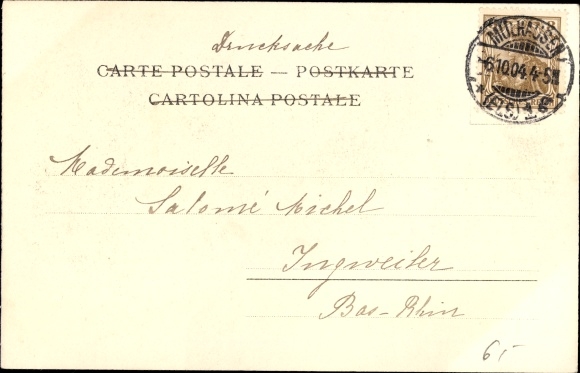 Drucksache
CARTE POSTALE — POSTKARTE
CARTOLINA POSTALE
MÜLHAUSEN
6.10.04.4-5N
(ELS) 1
Mademoiselle
Salomé Michel
Ingweiler
Bas-Rhin
6,-